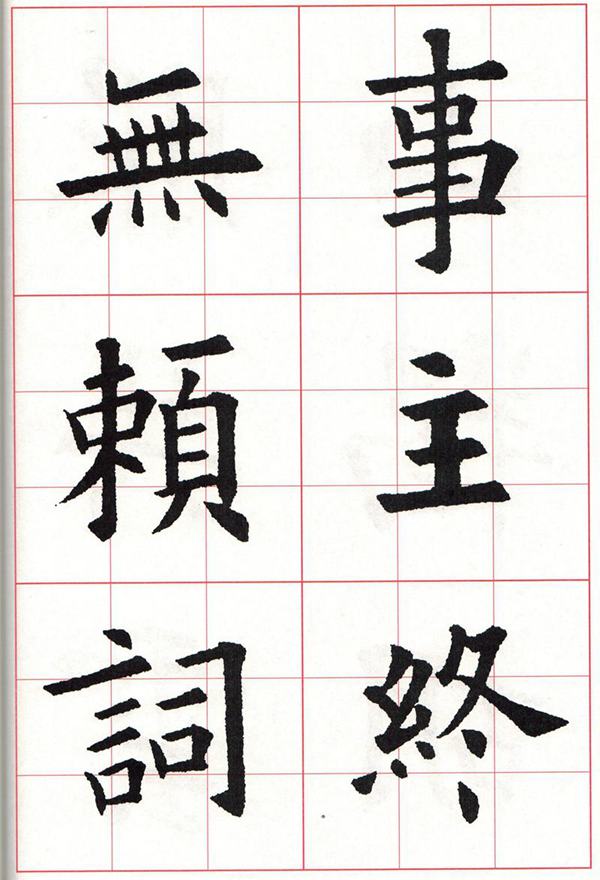 事主終
無頼詞